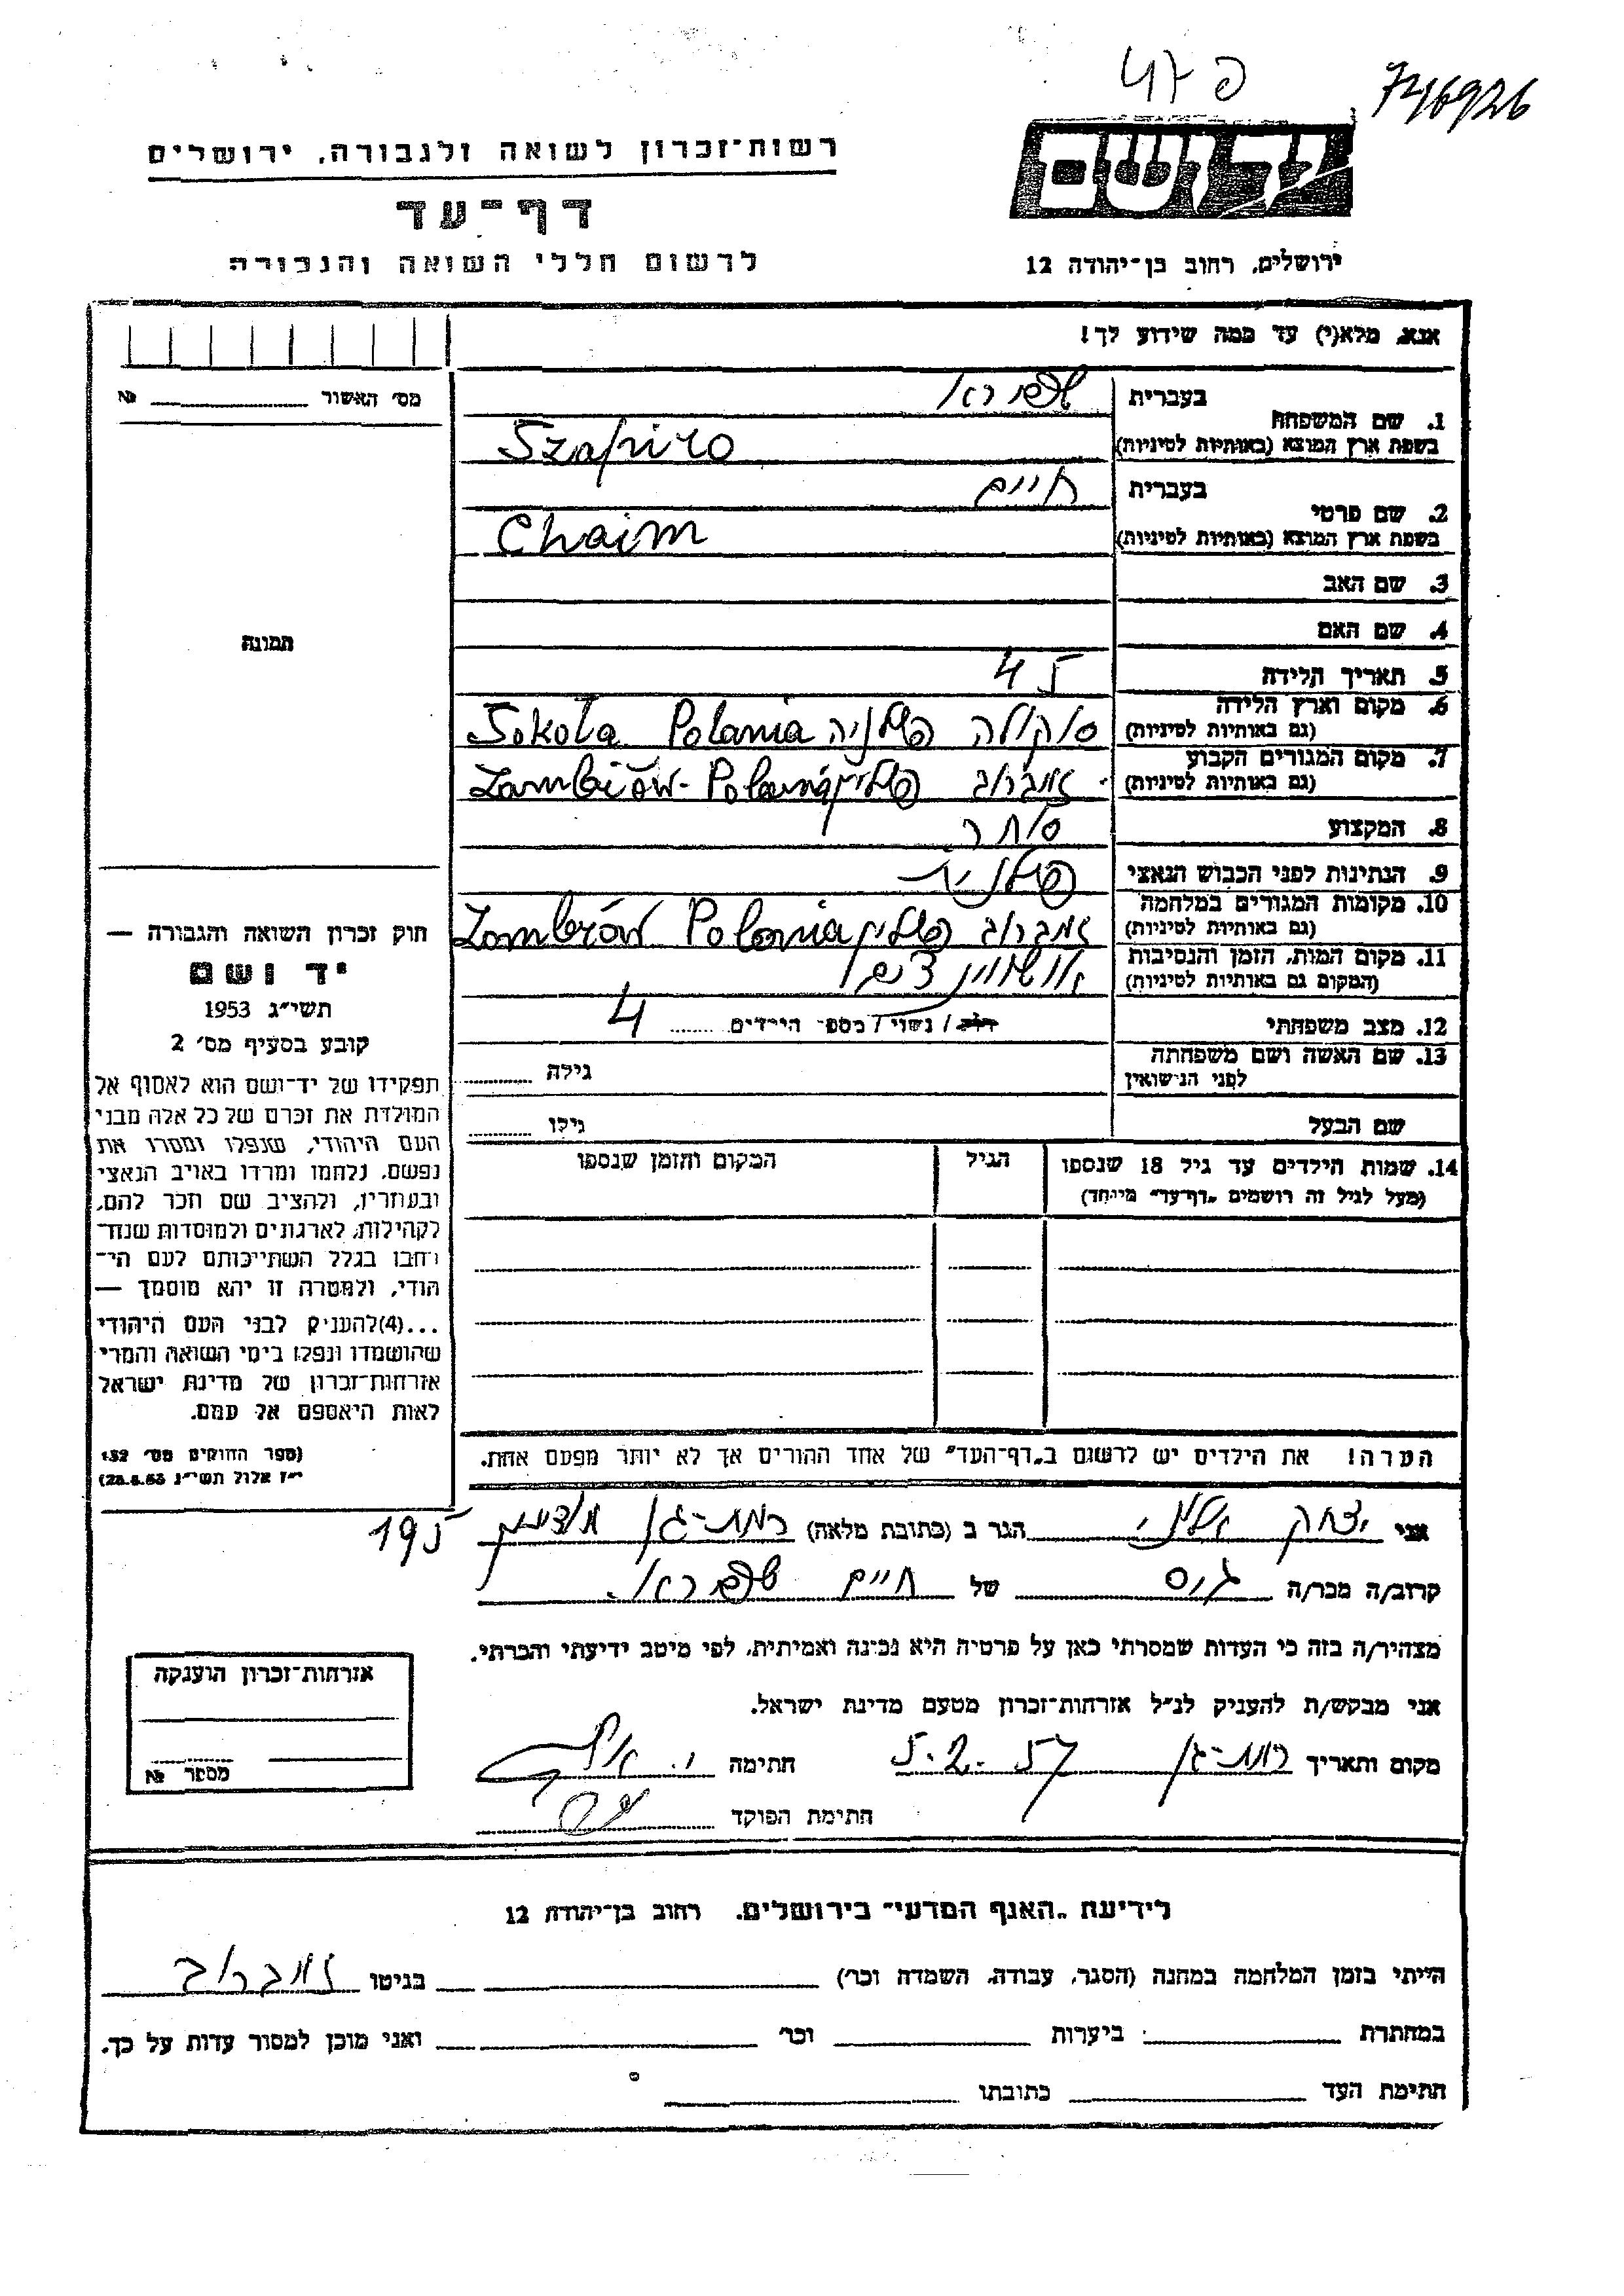 פ 47
746926
יד ושם
רשות־זכרון לשואה ולגבורה, ירושלים
דף־עד
לרשום חללי השואה והגבורה
ירושלים, רחוב בן־יהודה 12
אנא, מלא(י) עד כמה שידוע לך!
מס׳ האשור № 
1. שם המשפחה
בעברית שפירא
בשפת ארץ המוצא (באותיות לטיניות) Szapiro
2. שם פרטי
בעברית חיים
בשפת ארץ המוצא (באותיות לטיניות) Chaim
3. שם האב
4. שם האם
תמונה
5. תאריך הלידה 45
6. מקום וארץ הלידה
(גם באותיות לטיניות) סוקולה פולניה Sokoła Polania
7. מקום המגורים הקבוע
(גם באותיות לטיניות) זמברוב
8. המקצוע סוחר
9. הנתינות לפני הכבוש הנאצי פולנית
10. מקומות המגורים במלחמה
(גם באותיות לטיניות) זמברוב Zambrów Polania
11. מקום המות, הזמן והנסיבות
(המקום גם באותיות לטיניות)
12. מצב משפחתי רווק / נשוי / מספר הילדים 4
13. שם האשה ושם משפחתה
לפני הנישואין גילה
שם הבעל גילו
14. שמות הילדים עד גיל 18 שנספו
(מעל לגיל זה רושמים „דף־עד” מיוחד)
הגיל
המקום והזמן שנספו
הערה! את הילדים יש לרשום ב„דף־העד” של אחד ההורים אך לא יותר מפעם אחת.
חוק זכרון השואה והגבורה —
יד ושם
תשי״ג 1953
קובע בסעיף מס׳ 2
תפקידו של יד־ושם הוא לאסוף אל
המולדת את זכרם של כל אלה מבני
העם היהודי, שנפלו ומסרו את
נפשם, נלחמו ומרדו באויב הנאצי
ובעוזריו, ולהציב שם וזכר להם,
לקהילות, לארגונים ולמוסדות שנח־
רבו בגלל השתייכותם לעם הי־
הודי, ולמטרה זו יהא מוסמך —
...(4)להעניק לבני העם היהודי
שהושמדו ונפלו בימי השואה והמרי
אזרחות־זכרון של מדינת ישראל
לאות היאספם אל עמם.
(ספר החוקים מס׳ 132
י״ז אלול תשי״ג 28.8.53)
אני יצחק הגר ב (כתובת מלאה) רמת־גן מודיעין 195
קרוב/ה מכר/ה גיס של חיים שפירא.
מצהיר/ה בזה כי העדות שמסרתי כאן על פרטיה היא נכונה ואמיתית, לפי מיטב ידיעתי והכרתי.
אני מבקש/ת להעניק לנ״ל אזרחות־זכרון מטעם מדינת ישראל.
מקום ותאריך רמת־גן 5.2.57 חתימה
חתימת הפוקד
אזרחות־זכרון הוענקה
מספר №
לידיעת „האגף המדעי” בירושלים, רחוב בן־יהודה 12
הייתי בזמן המלחמה במחנה (הסגר, עבודה, השמדה וכו׳) בגיטו זמברוב
במחתרת ביערות וכו׳ ואני מוכן למסור עדות על כך.
חתימת העד כתובתו